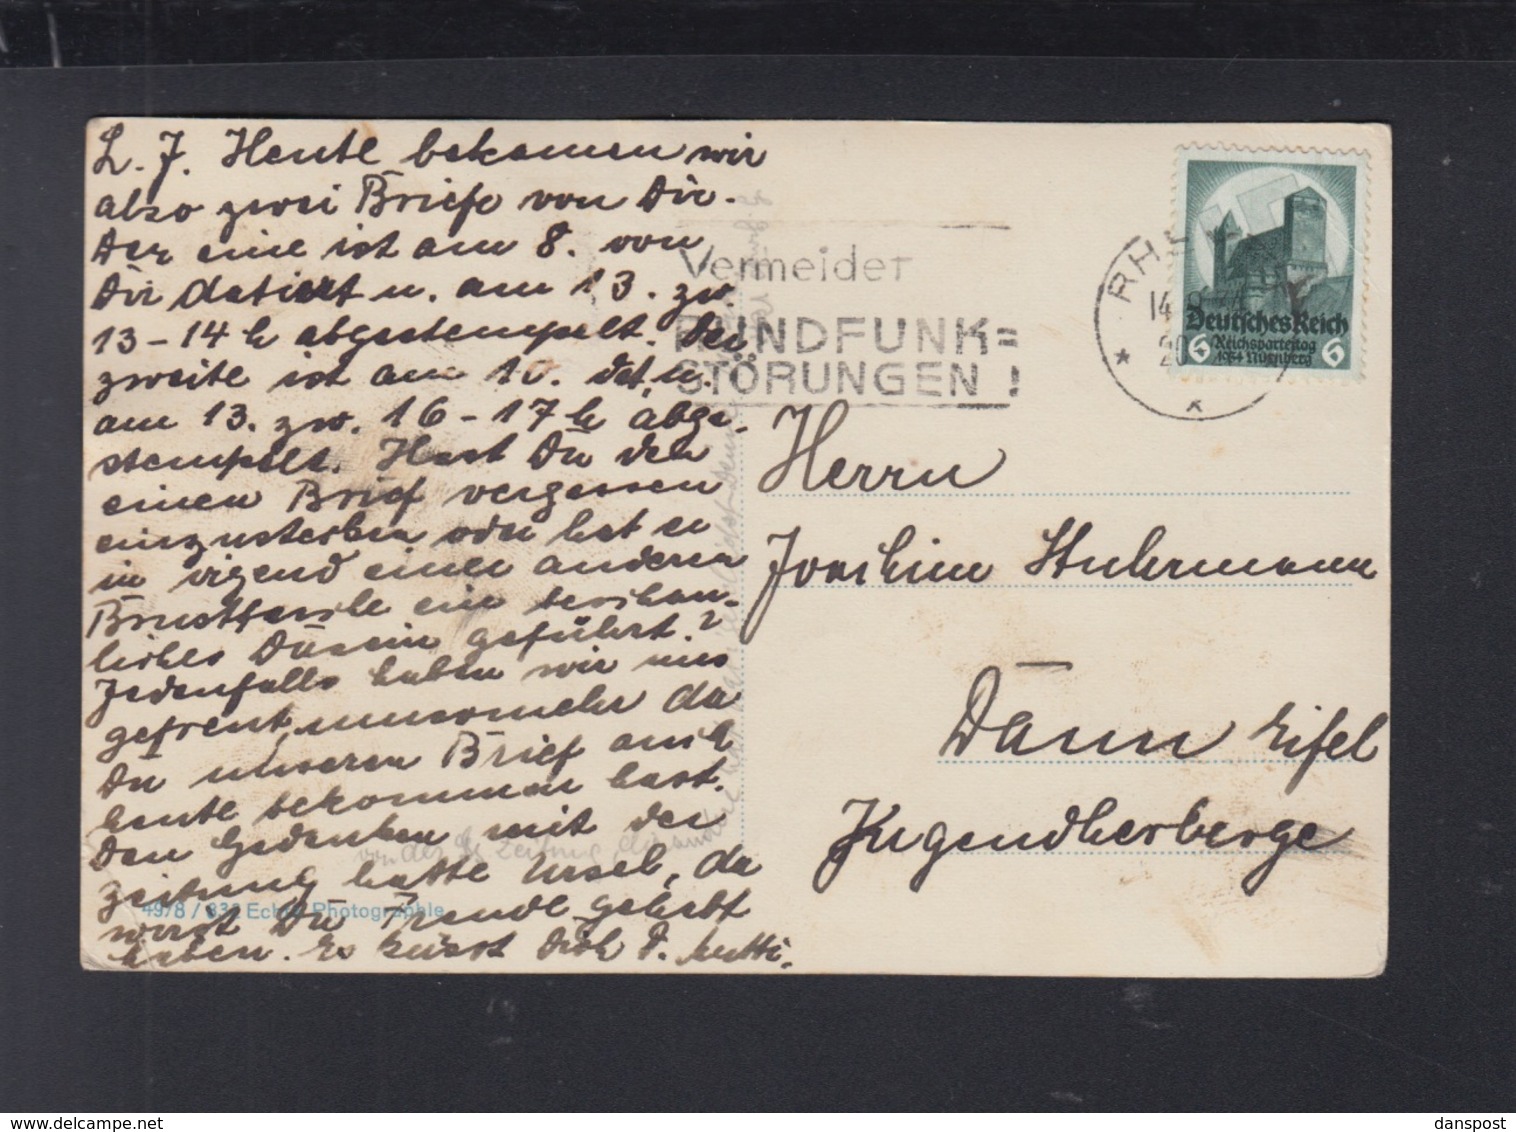 L. J. Heute bekamen wir
also zwei Briefe von Dir.
Der eine ist am 8. von
Dir datiert u. am 13. zw.
13-14 h abgestempelt. Der
zweite ist am 10. dat. u.
am 13. zw. 16-17 h abge-
stempelt. Hast Du den
einen Brief vergessen
einzustecken oder hat er
in irgend einer anderen
Brusttasche ein beschau-
liches Dasein geführt?
Jedenfalls haben wir uns
gefreut, umsomehr da
Du unseren Brief auch
heute bekommen hast.
Den Gedanken mit der
Zeitung hatte Ursel, da
wirst Du Freude gehabt
haben. Es küsst Dich D. Mutti.
von der Zeitung, die andere
49/8 / 832 Echte Photographie
Vermeidet
RUNDFUNK=
STÖRUNGEN!
RHE
14
20
Deutsches Reich
6 Reichsparteitag 6
1934 Nürnberg
Herrn
Joachim Stuhrmann
Daun Eifel
Jugendherberge
danspost
delcampe.net